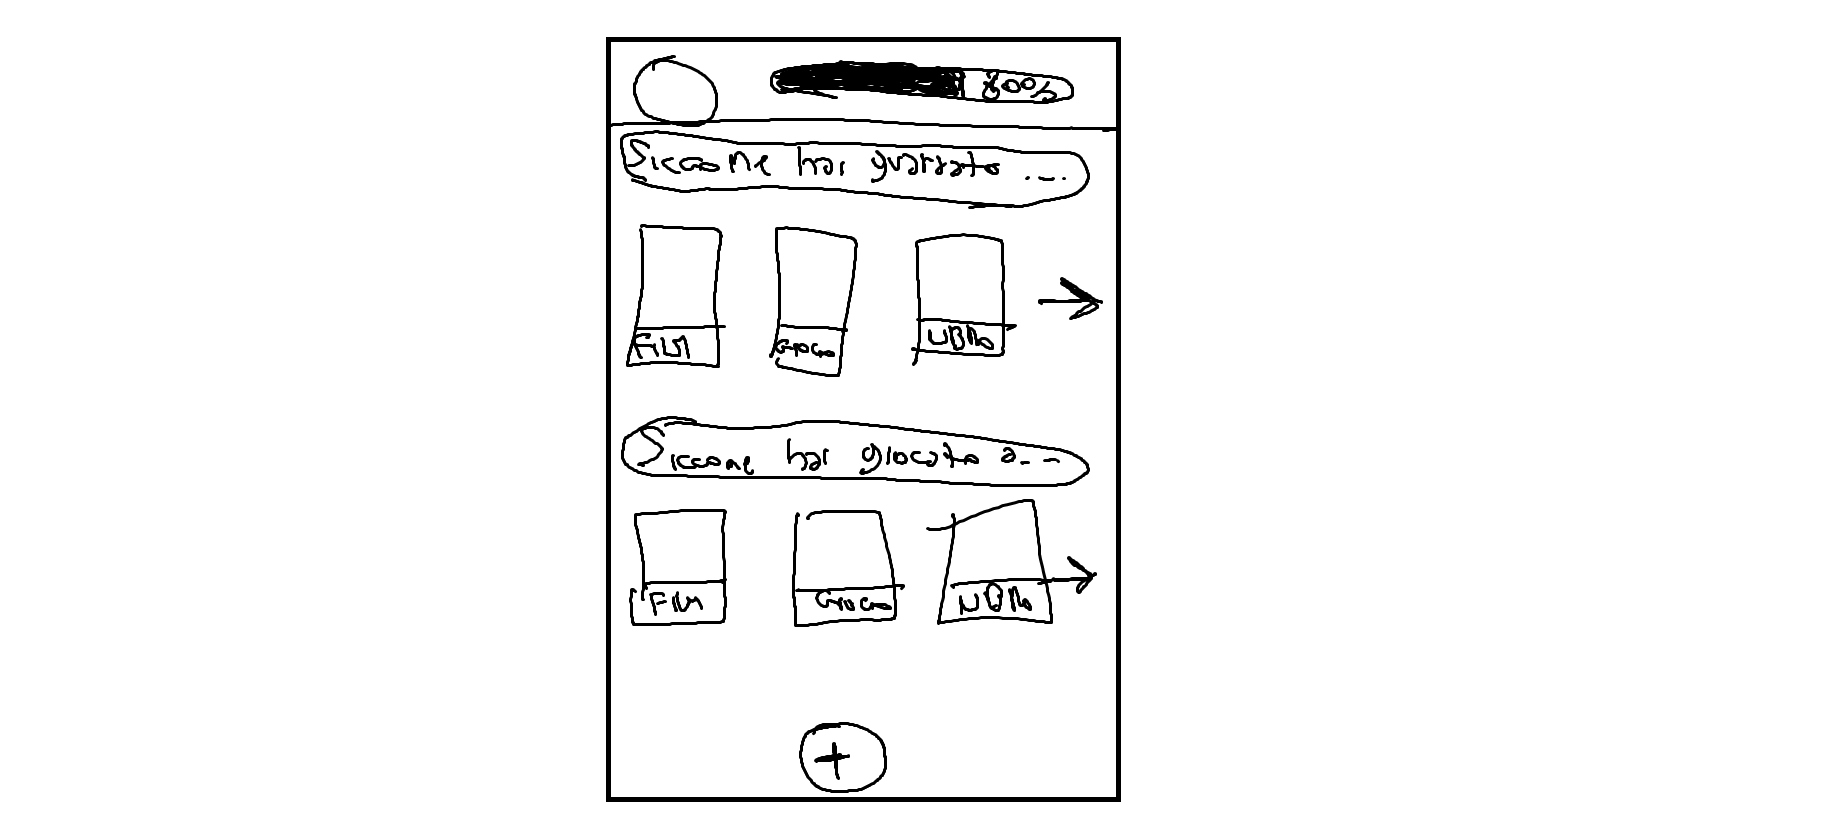 80%
Siccome hai guardato ...
FILM GIOCO LIBRO
Siccome hai giocato a...
FILM GIOCO LIBRO
+